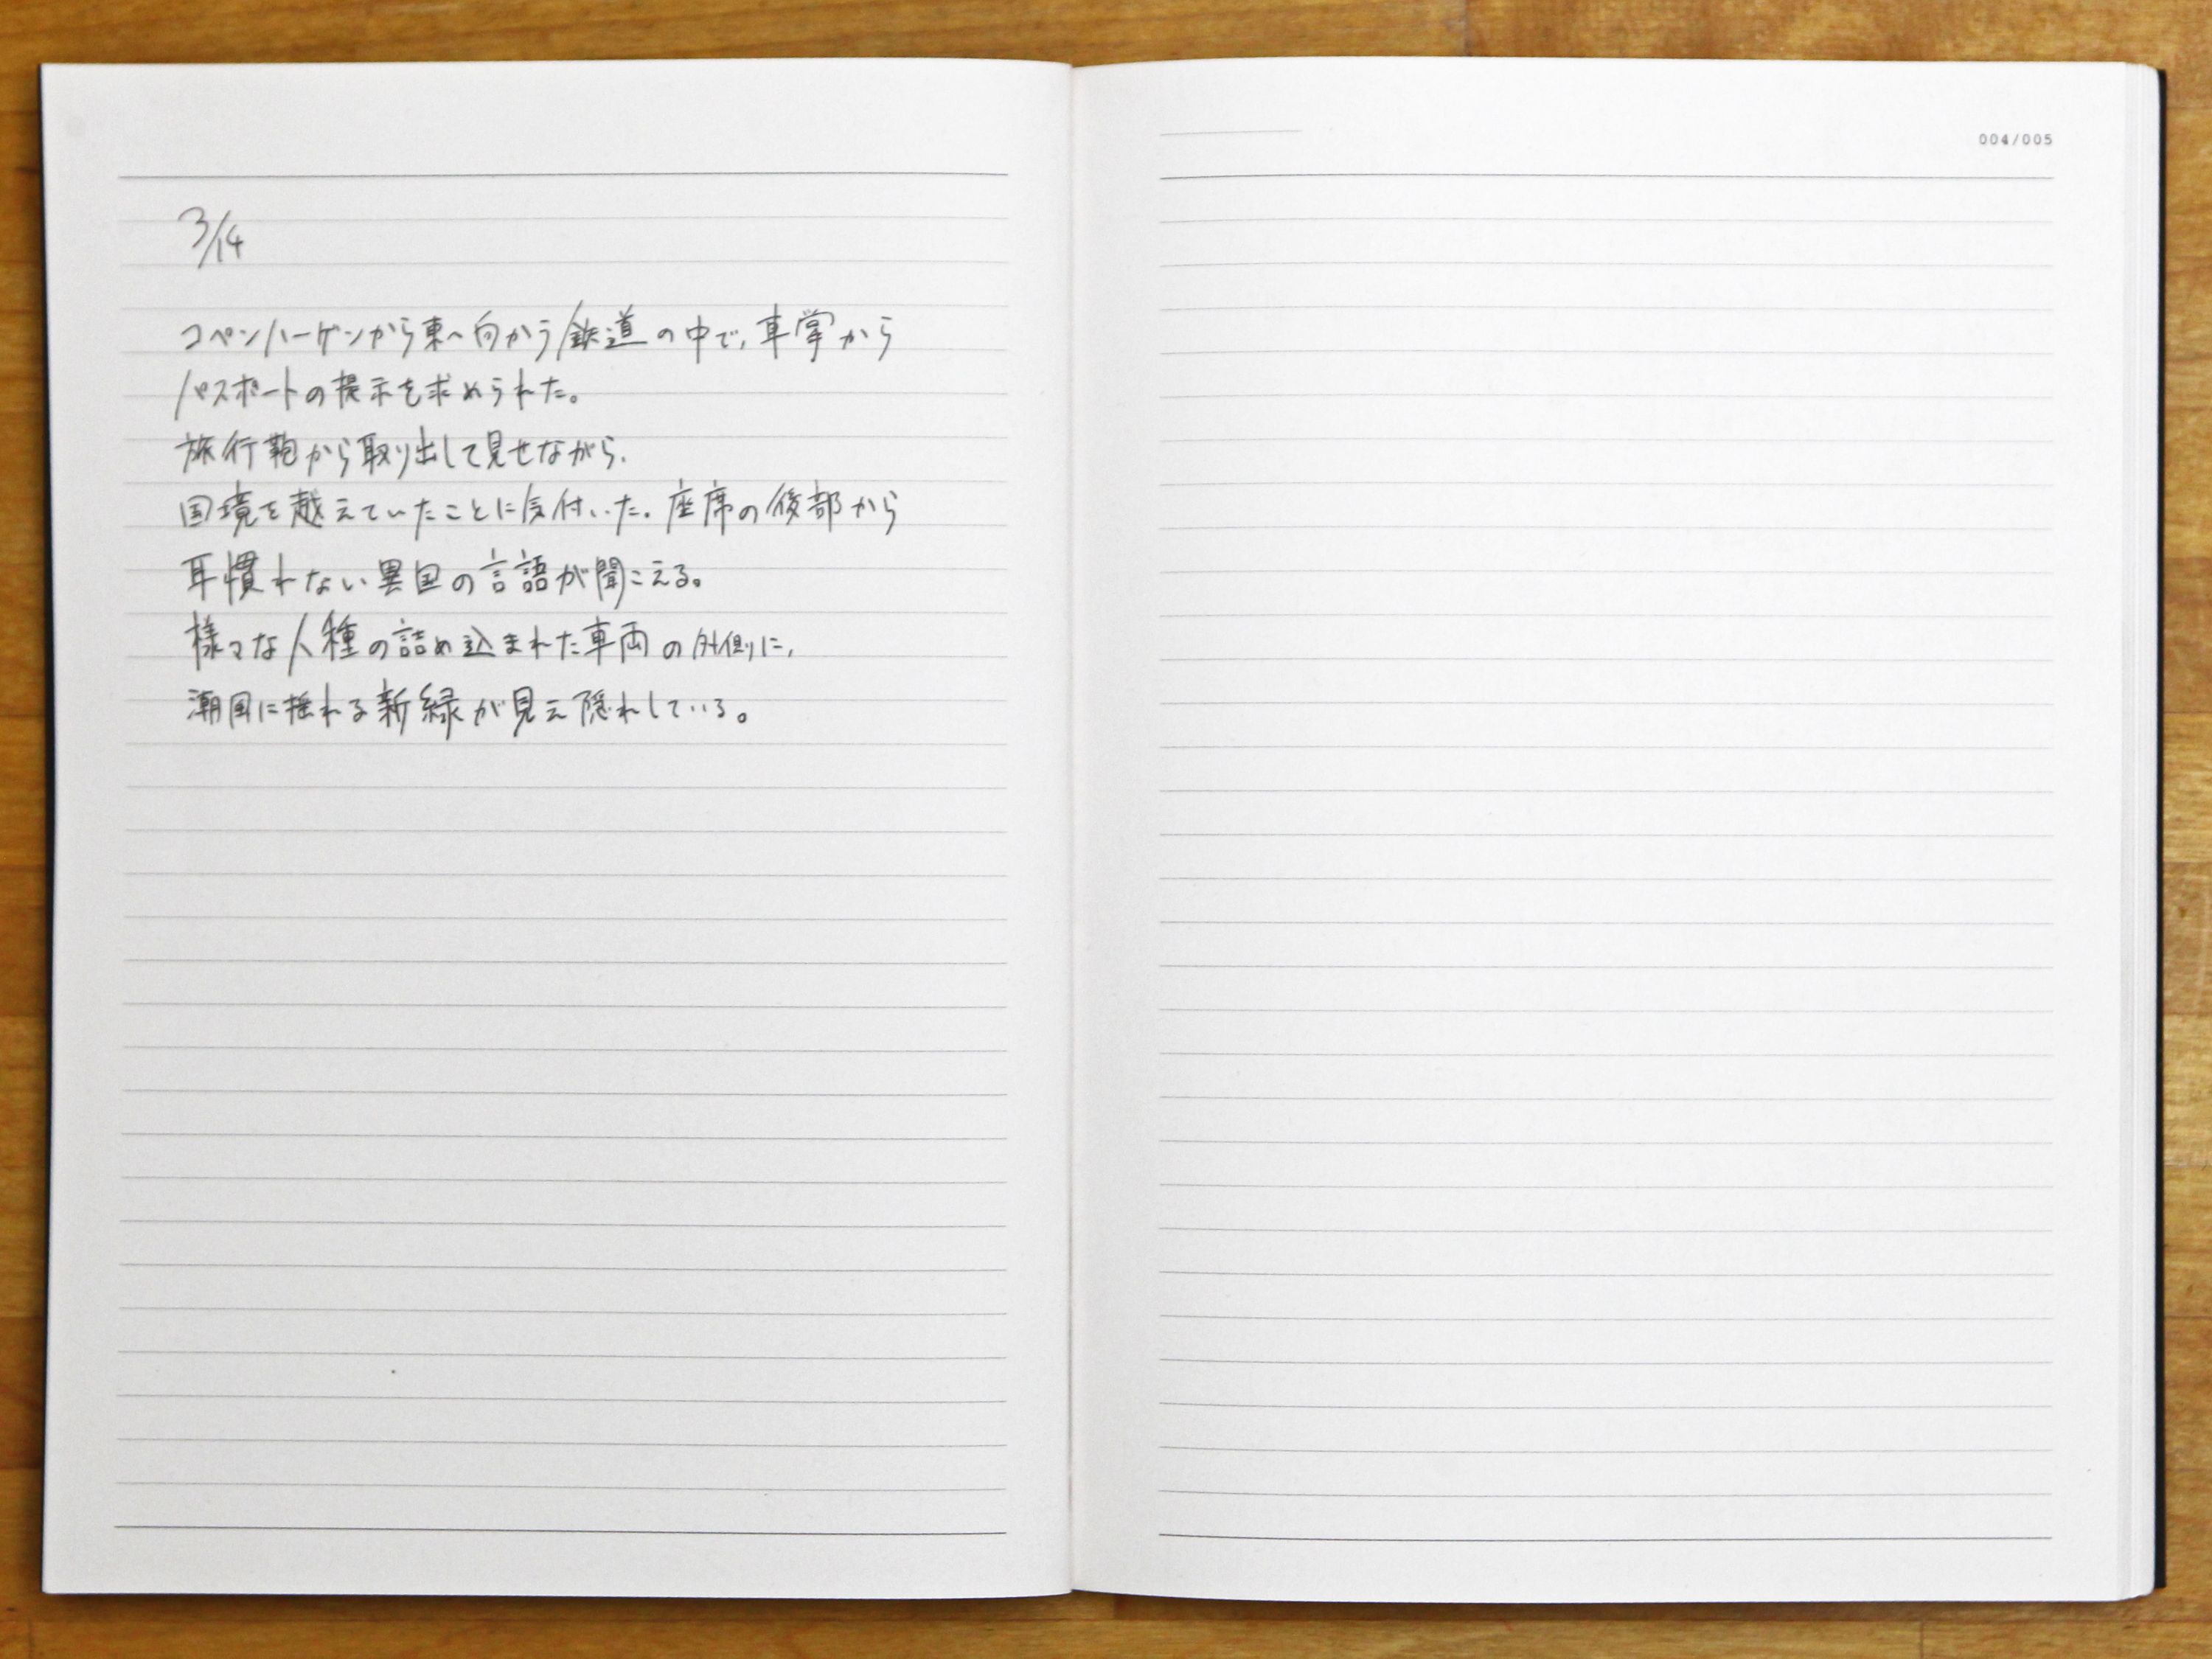 3/14
コペンハーゲンから東へ向かう鉄道の中で、車掌から
パスポートの提示を求められた。
旅行鞄から取り出して見せながら、
国境を越えていたことに気付いた。座席の後部から
耳慣れない異国の言語が聞こえる。
様々な人種の詰め込まれた車両の外側に、
潮風に揺れる新緑が見え隠れしている。
004/005